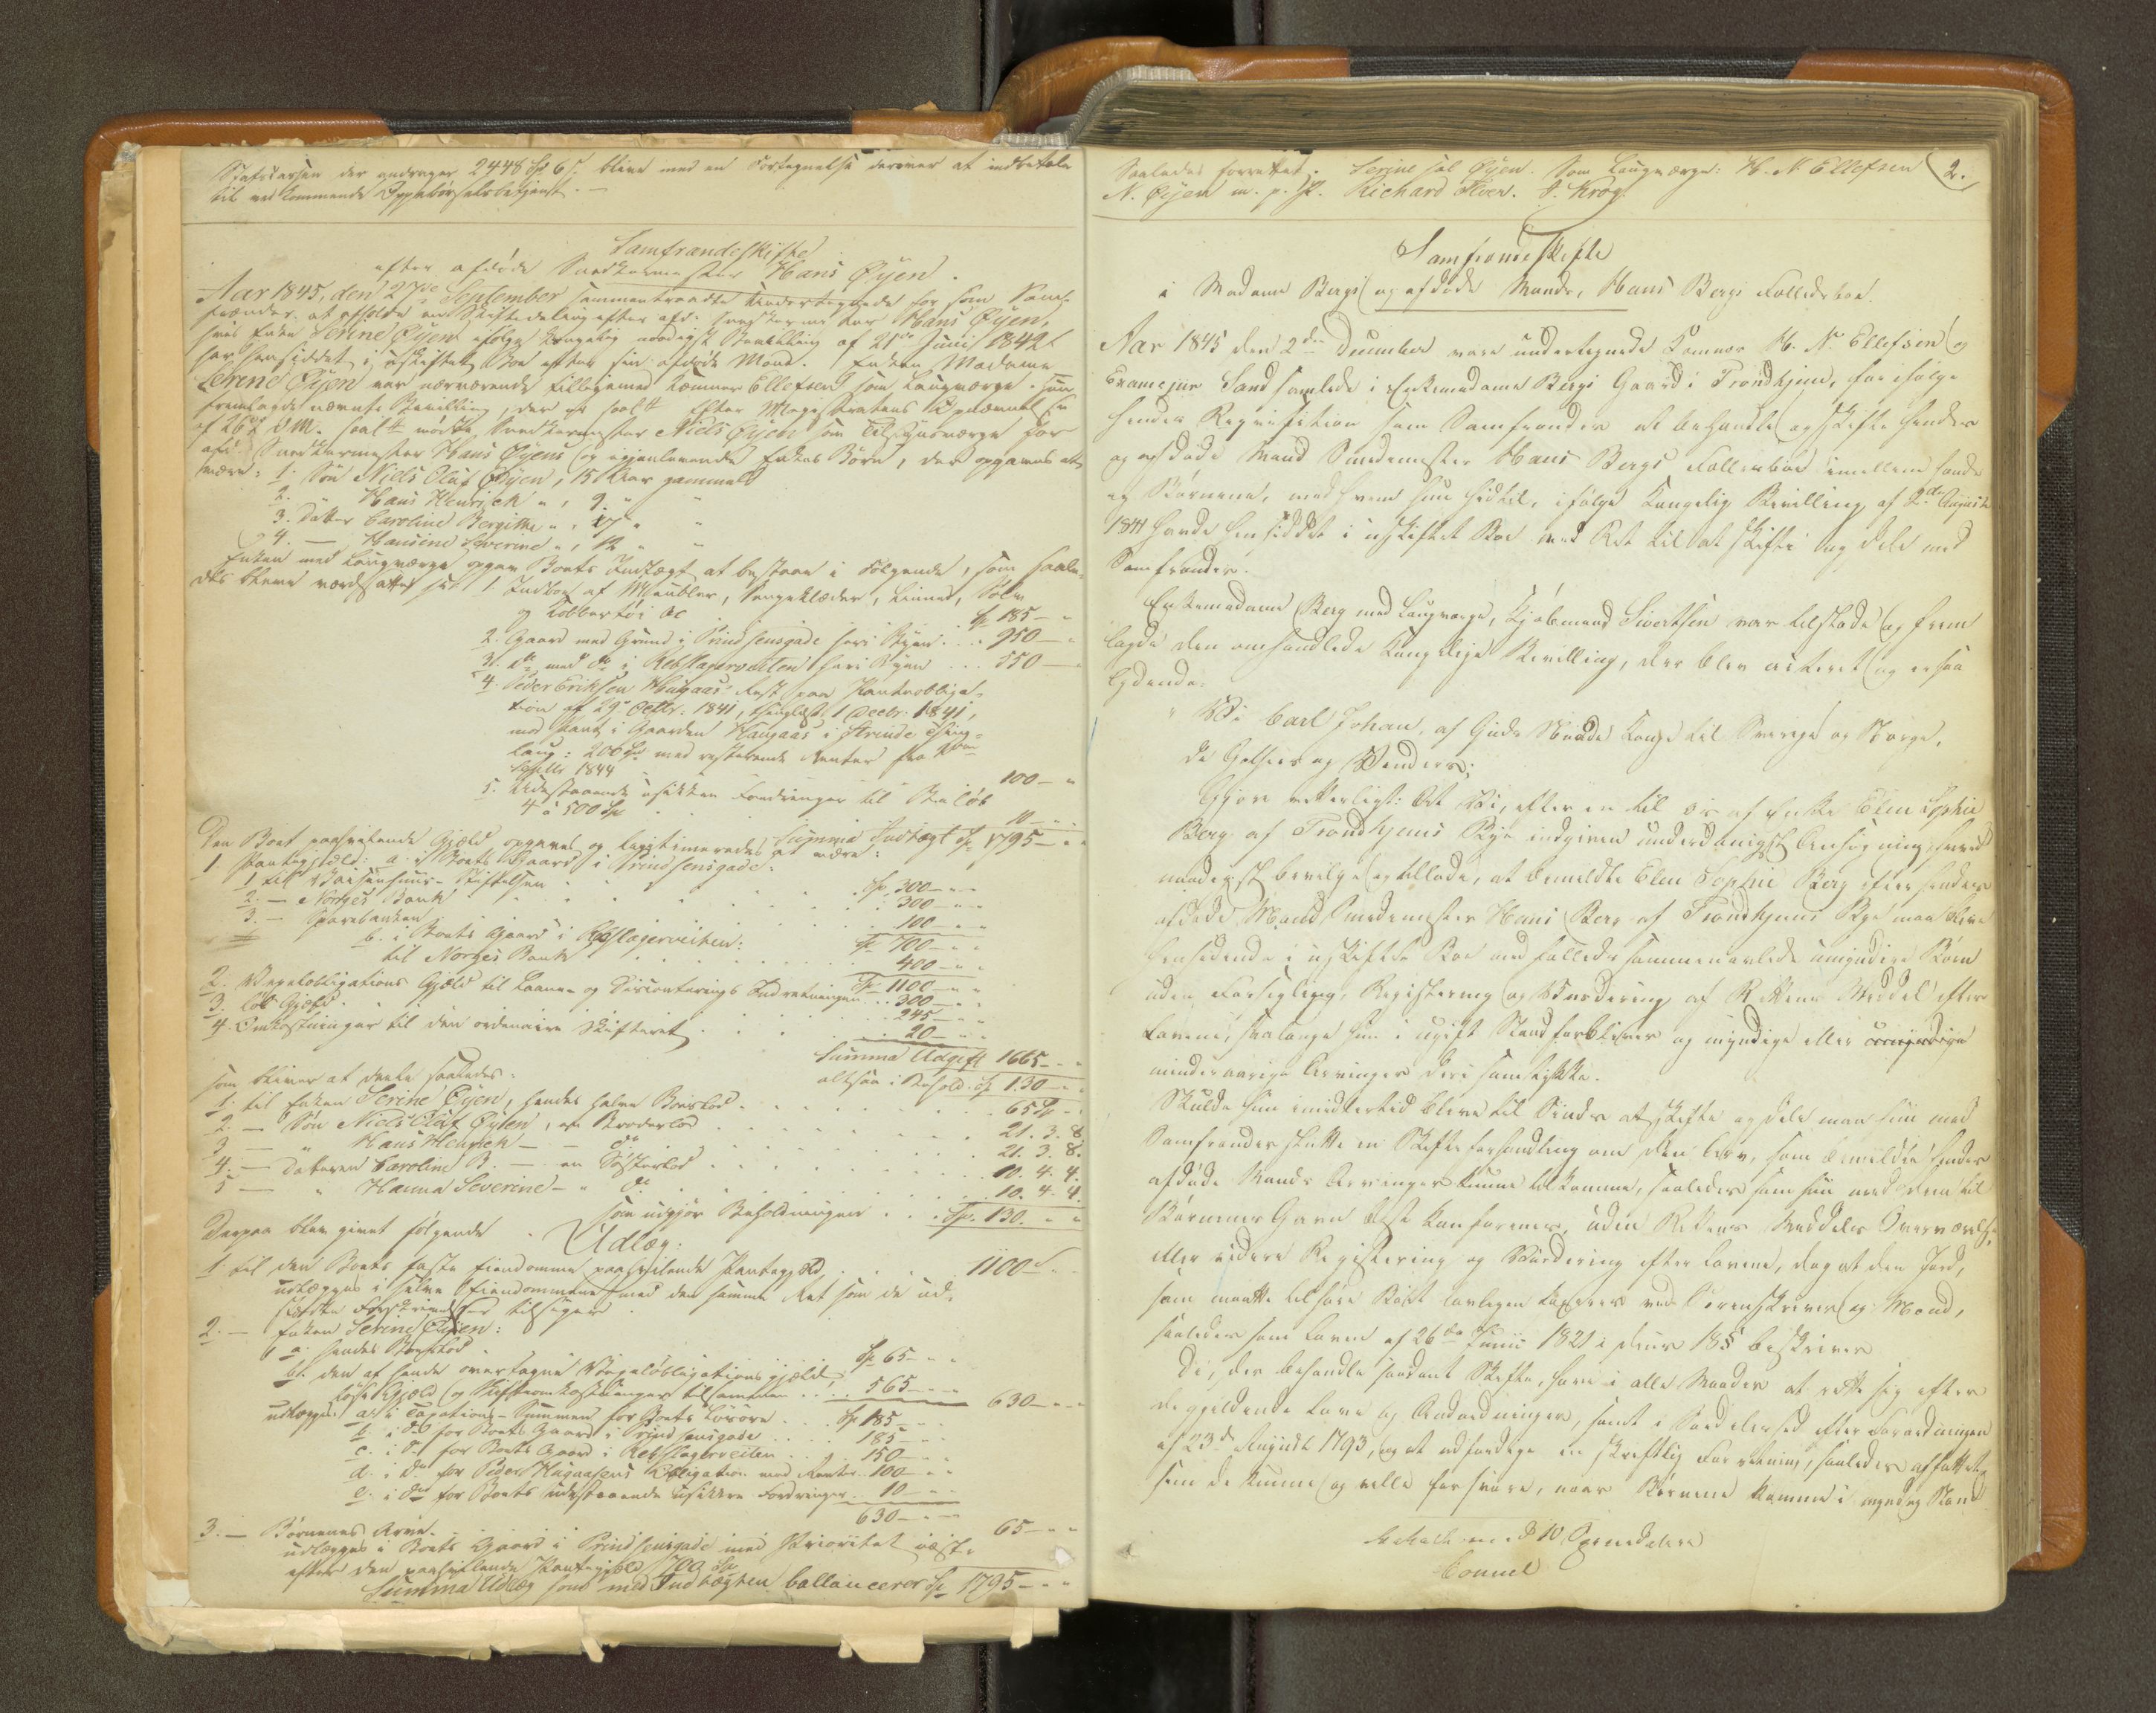 Statscassen der andrager 2448 Sp 6 s. bliver med en Fortegnelse derover at indbetale
til vedkommende Oppebørselsbetjent. —
Samfrændeskifte
efter afdøde Snedkermester Hans Øyen.
Aar 1845, den 27de September sammentraadte Undertegnede for som Sam-
frænder at afholde en Skiftedeling efter afd. Snedkermester Hans Øyen,
hvis Enke Serine Øyen ifølge Kongelig naadigst Bevilling af 21de Junii 1842
har hensiddet i uskiftet Boe efter sin afdøde Mand. Enken Madame
Serine Øyen var nærværende tilligemed Kæmner Ellefsen som Laugværge. Hun
fremlagde nævnte Bevilling, der er saal. Efter Magistratens Opnævnelse
af 26de d. M. saal. mødte Snedkermester Niels Øyen som Tilsynsværge for
afd. Snedkermester Hans Øyens og igjenlevende Enkes Børn, der opgaves at
være: 1. Søn Niels Oluf Øyen, 15 Aar gammel
2. " Hans Henrich " , 9 " "
3. Datter Caroline Bergithe " , 17 " "
4. — Hansine Severine " , 12 " "
Enken med Laugværge opgav Boets Indtægt at bestaae i Følgende, som saale-
des bleve værdsatte 1. Indboe af Meubler, Sengeklæder, Linned, Sølv
og Kobbertøi &c . . . Sp 185 — "
2. Gaard med Grund i Prindsensgade her i Byen . . . 950 — "
3. do med do i Rebslagerveiten her i Byen . . . 550 —
4. Peder Eriksen Haugaas' Rest paa Panteobliga-
tion af 29de Octbr. 1841, thinglæst 1 Decbr. 1841,
med Pant i Gaarden Haugaas i Strinde Thing-
laug: 206 Sp med resterende Renter fra
1844 . . . 100 — "
5. Udestaaende usikkre Fordringer til Beløb
4 à 500 Sp . . . 10 — "
Summa Indtægt Sp 1795 — "
Den Boet paahvilende Gjæld opgaves og legitimeredes at være:
1. Pantegjæld: a. i Boets Gaard i Prindsensgade:
1 til Waisenhuus-Stiftelsen . . . Sp. 300 — "
2. — Norges Bank . . . 300 — "
3. — Sparebanken . . . 100 — "
Sp 700 — "
b. i Boets Gaard i Rebslagerveiten:
til Norges Bank . . . 400 — "
Sp 1100 — "
2. Vexelobligations Gjæld til Laane- og Disconterings Indretningen . . 300 — "
3. løs Gjæld . . . 245 — "
4. Omkostninger til den ordenaire Skifteret . . . 20 — "
Summa Udgift 1665 — "
altsaa i Behold. Sp 130 — "
som bliver at deele saaledes:
1. til Enken Serine Øyen, hendes halve Boeslod . . . 65 Sp — "
2. — Søn Niels Oluf Øyen, en Broderlod . . . 21. 3. 8.
3 — " Hans Henrich — — do . . . 21. 3. 8.
4. — Datteren Caroline B. — en Søsterlod . . . 10. 4. 4.
5 — " Hanna Severine — " do . . . 10. 4. 4.
som udgjør Beholdningen . . . Sp. 130. " "
Derpaa blev givet følgende
Udlæg:
1. til den Boets faste Eiendomme paahvilende Pantegjæld . . . 1100 — "
udlægges i selve Eiendommene med den samme Ret som de ud-
stædte Forskrivelser tilsiger.
2. — Enken Serine Øyen:
a. hendes Boeslod . . . Sp 65 — "
b. den af hende overtagne Vexelobligationsgjæld,
løse Gjæld og Skifteomkostninger tilsammen . . . 565 — "
630 — "
udlægges a. i Taxations-Summen for Boets Løsøre . . . Sp 185 — "
b. i do for Boets Gaard i Prindsensgade . . . 185 — "
c. i do for Boets Gaard i Rebslagerveiten . . . 150 — "
d. i do for Peder Haugaasens Obligation med Renter . . 100 — "
e. i do for Boets udestaaende usikkre Fordringer . 10 — "
630 — "
3. — Børnenes Arv . . . 65 — "
udlægges i Boets Gaard i Prindsensgade med Prioritet næst
efter den paahvilende Pantegjæld 700 Sp
Summa Udlæg som med Indtægten ballancerer Sp 1795 — "
2.
Saaledes forrettet. Serine sal Øyen. Som Laugværge: H. N. Ellefsen
N. Øyen m. p. P. Richard Floer. J. Krog
Samfrændeskifte
i Madame Bergs og afdøde Mands, Hans Bergs Fælledsboe.
Aar 1845 den 2den December vare undertegnede Kæmner H. Nn. Ellefsen og
Examejur Sand samlede i Enkemadame Bergs Gaard i Trondhjem, for ifølge
hendes Requisition som Samfrænder at behandle og skifte hendes
og afdøde Mand Smedemester Hans Bergs Fællesboe imellem hende
og Børnene, med hvem hun hidtil, ifølge Kongelig Bevilling af 2den August
1841 havde hensiddet i uskiftet Boe med Ret til at skifte og dele med
Samfrænder.
Enkemadame Berg med Laugværge, Kjøbmand Sivertsen var tilstede og frem
lagde den omhandlede Kongelige Bevilling, der blev acteret og er saa
lydende:
" Vi Carl Johan, af Guds Naade Konge til Sverige og Norge,
de Gothers og Venders;
Gjøre vitterligt: At Vi, efter en til os af Enke Elen Sophie
Berg af Trondhjems Bye indgiven underdanigst Ansøgning herved
naadigst bevilge og tillade, at bemeldte Elen Sophie Berg efter hendes
afdøde Mand Smedemester Hans Berg af Trondhjems Bye maa blive
hensidende i uskiftet Boe med fælleds sammenavlede umyndige Børn
uden Forsegling, Registering og Vurdering af Rettens Middel efter
Lovene, saalænge hun i ugift Stand forbliver og myndige eller umyndige
mindreaarige Arvinger deri samtykke.
Skulde hun imidlertid blive til Sinds at skifte og dele maa hun med
Samfrænder slutte en Skifteforhandling om den Arv, som bemeldte hendes
afdøde Mands Arvinger kunne tilkomme, saaledes som hun med dem til
Børnenes Gavn bedst kan forenes, uden Rettens Middels Overværelse
eller videre Registering og Vurdering efter Lovene, dog at den Jord,
som maatte tilhøre Boet lovligen taxeres ved Sorenskriver og Mænd,
saaledes som Loven af 26de Junii 1821 i dens 18§ beskriver
De, der behandle saadant Skifte, have i alle Maader at rette sig efter
de gjeldende Love og Anordninger, samt i Særdeleshed efter Forordningen
af 23de August 1793, og at udfærdige en skriftlig Forretning, saaledes affattet
som de kunne og ville forsvare, naar Børnene komme i myndig Stand
Betalt med 10 Speciedaler